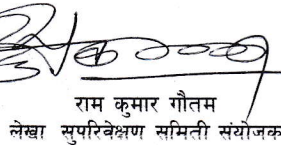 राम कुमार गौतम
लेखा सुपरिवेक्षण समिती संयोजक